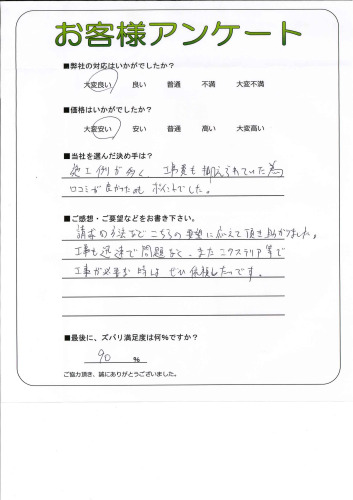 お客様アンケート
■弊社の対応はいかがでしたか？
大変良い 良い 普通 不満 大変不満
■価格はいかがでしたか？
大変安い 安い 普通 高い 大変高い
■当社を選んだ決め手は？
施工例が多く 工事費も抑えられていた為
口コミが良かったのもポイントでした。
■ご感想・ご要望などをお書き下さい。
請求の方法などこちらの要望に応えて頂き助かりました。
工事も迅速で問題なく、またエクステリア等で
工事が必要な時は ぜひ依頼したいです。
■最後に、ズバリ満足度は何％ですか？
90 ％
ご協力頂き、誠にありがとうございました。